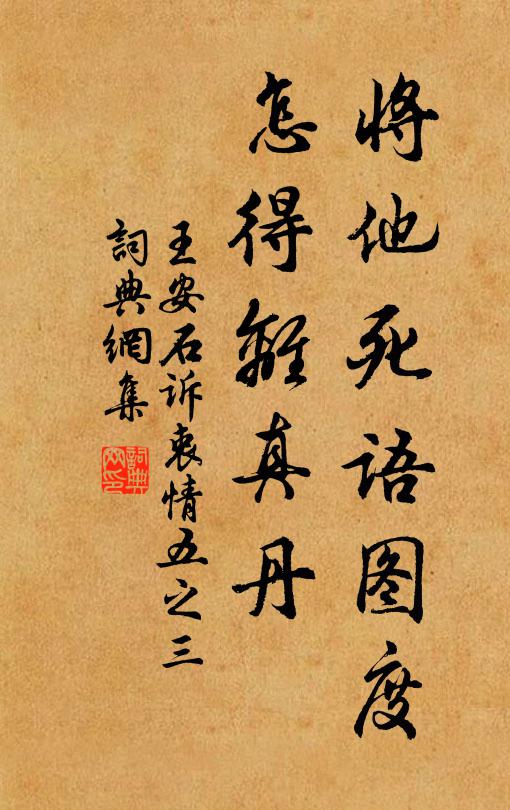 將他死语图度
怎得離真丹
王安石诉衷情五之三
詞典網集
詞典網印